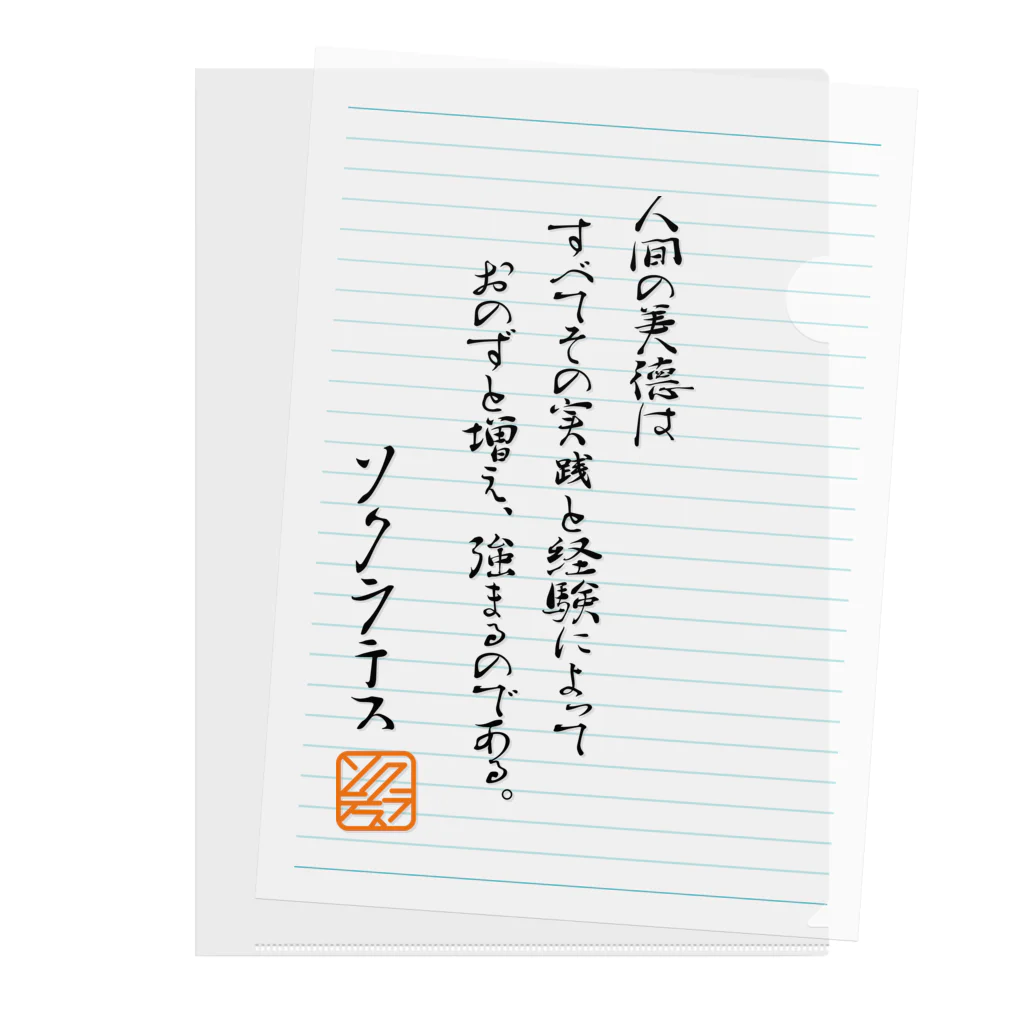 人間の美徳は
すべてその実践と経験によって
おのずと増え、強まるのである。
ソクラテス
ソクラテス